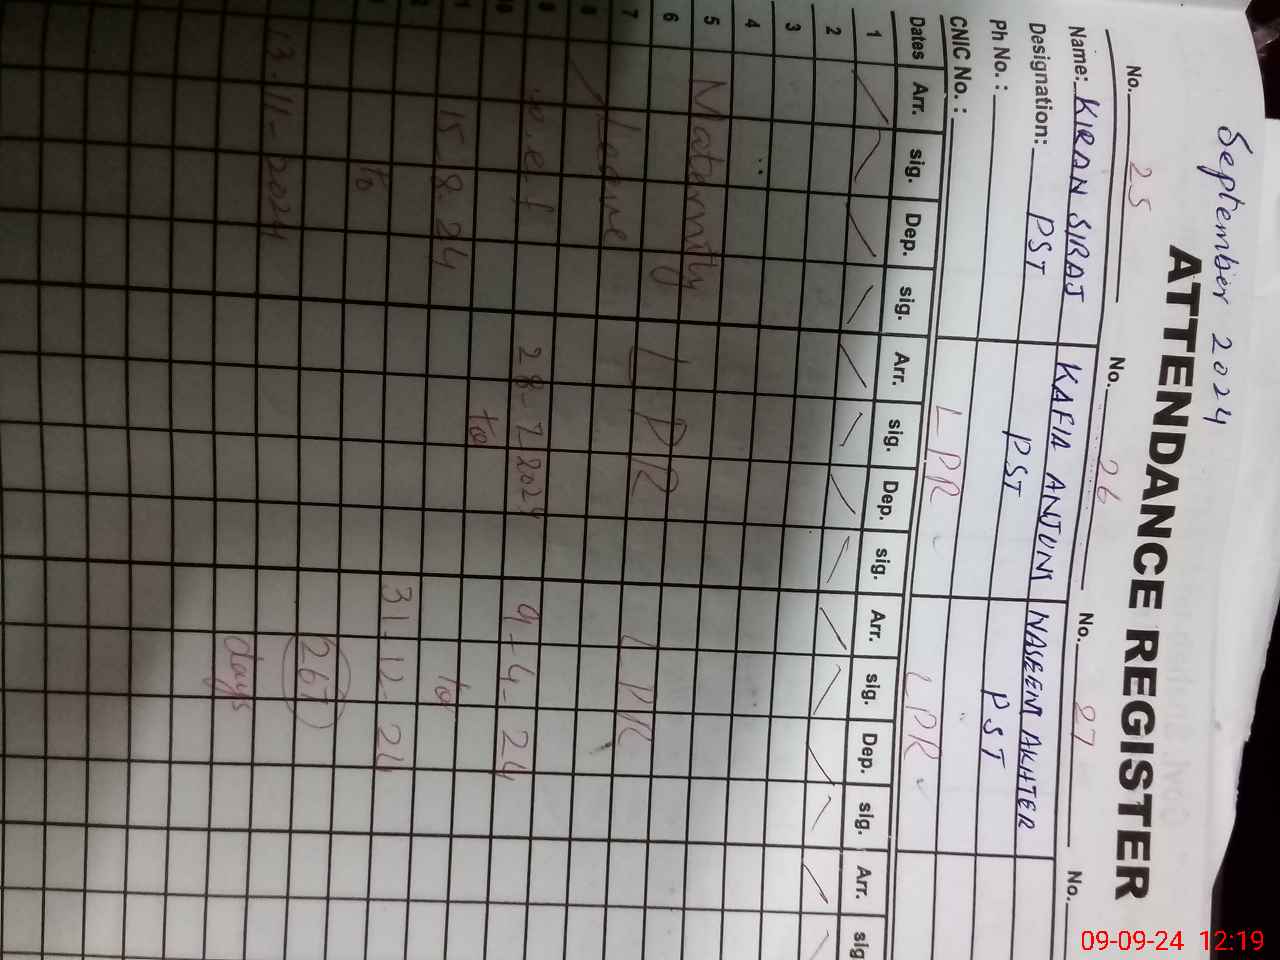 September 2024
ATTENDANCE REGISTER
No. 25 No. 26 No. 27 No.
Name: KIRAN SIRAJ KAFIA ANJUM NASEEM AKHTER
Designation: PST PST PST
Ph No. :
CNIC No. : LPR LPR
Dates Arr. sig. Dep. sig. Arr. sig. Dep. sig. Arr. sig. Dep. sig. Arr. sig
1
2
3
4
5 Maternity
6
7 Leave LPR LPR
8
9 w.e.f 28-7-2024 9-4-24
10 to
11 15-8-24 to
12 31-12-24
to
267
13-11-2024 days
09-09-24 12:19